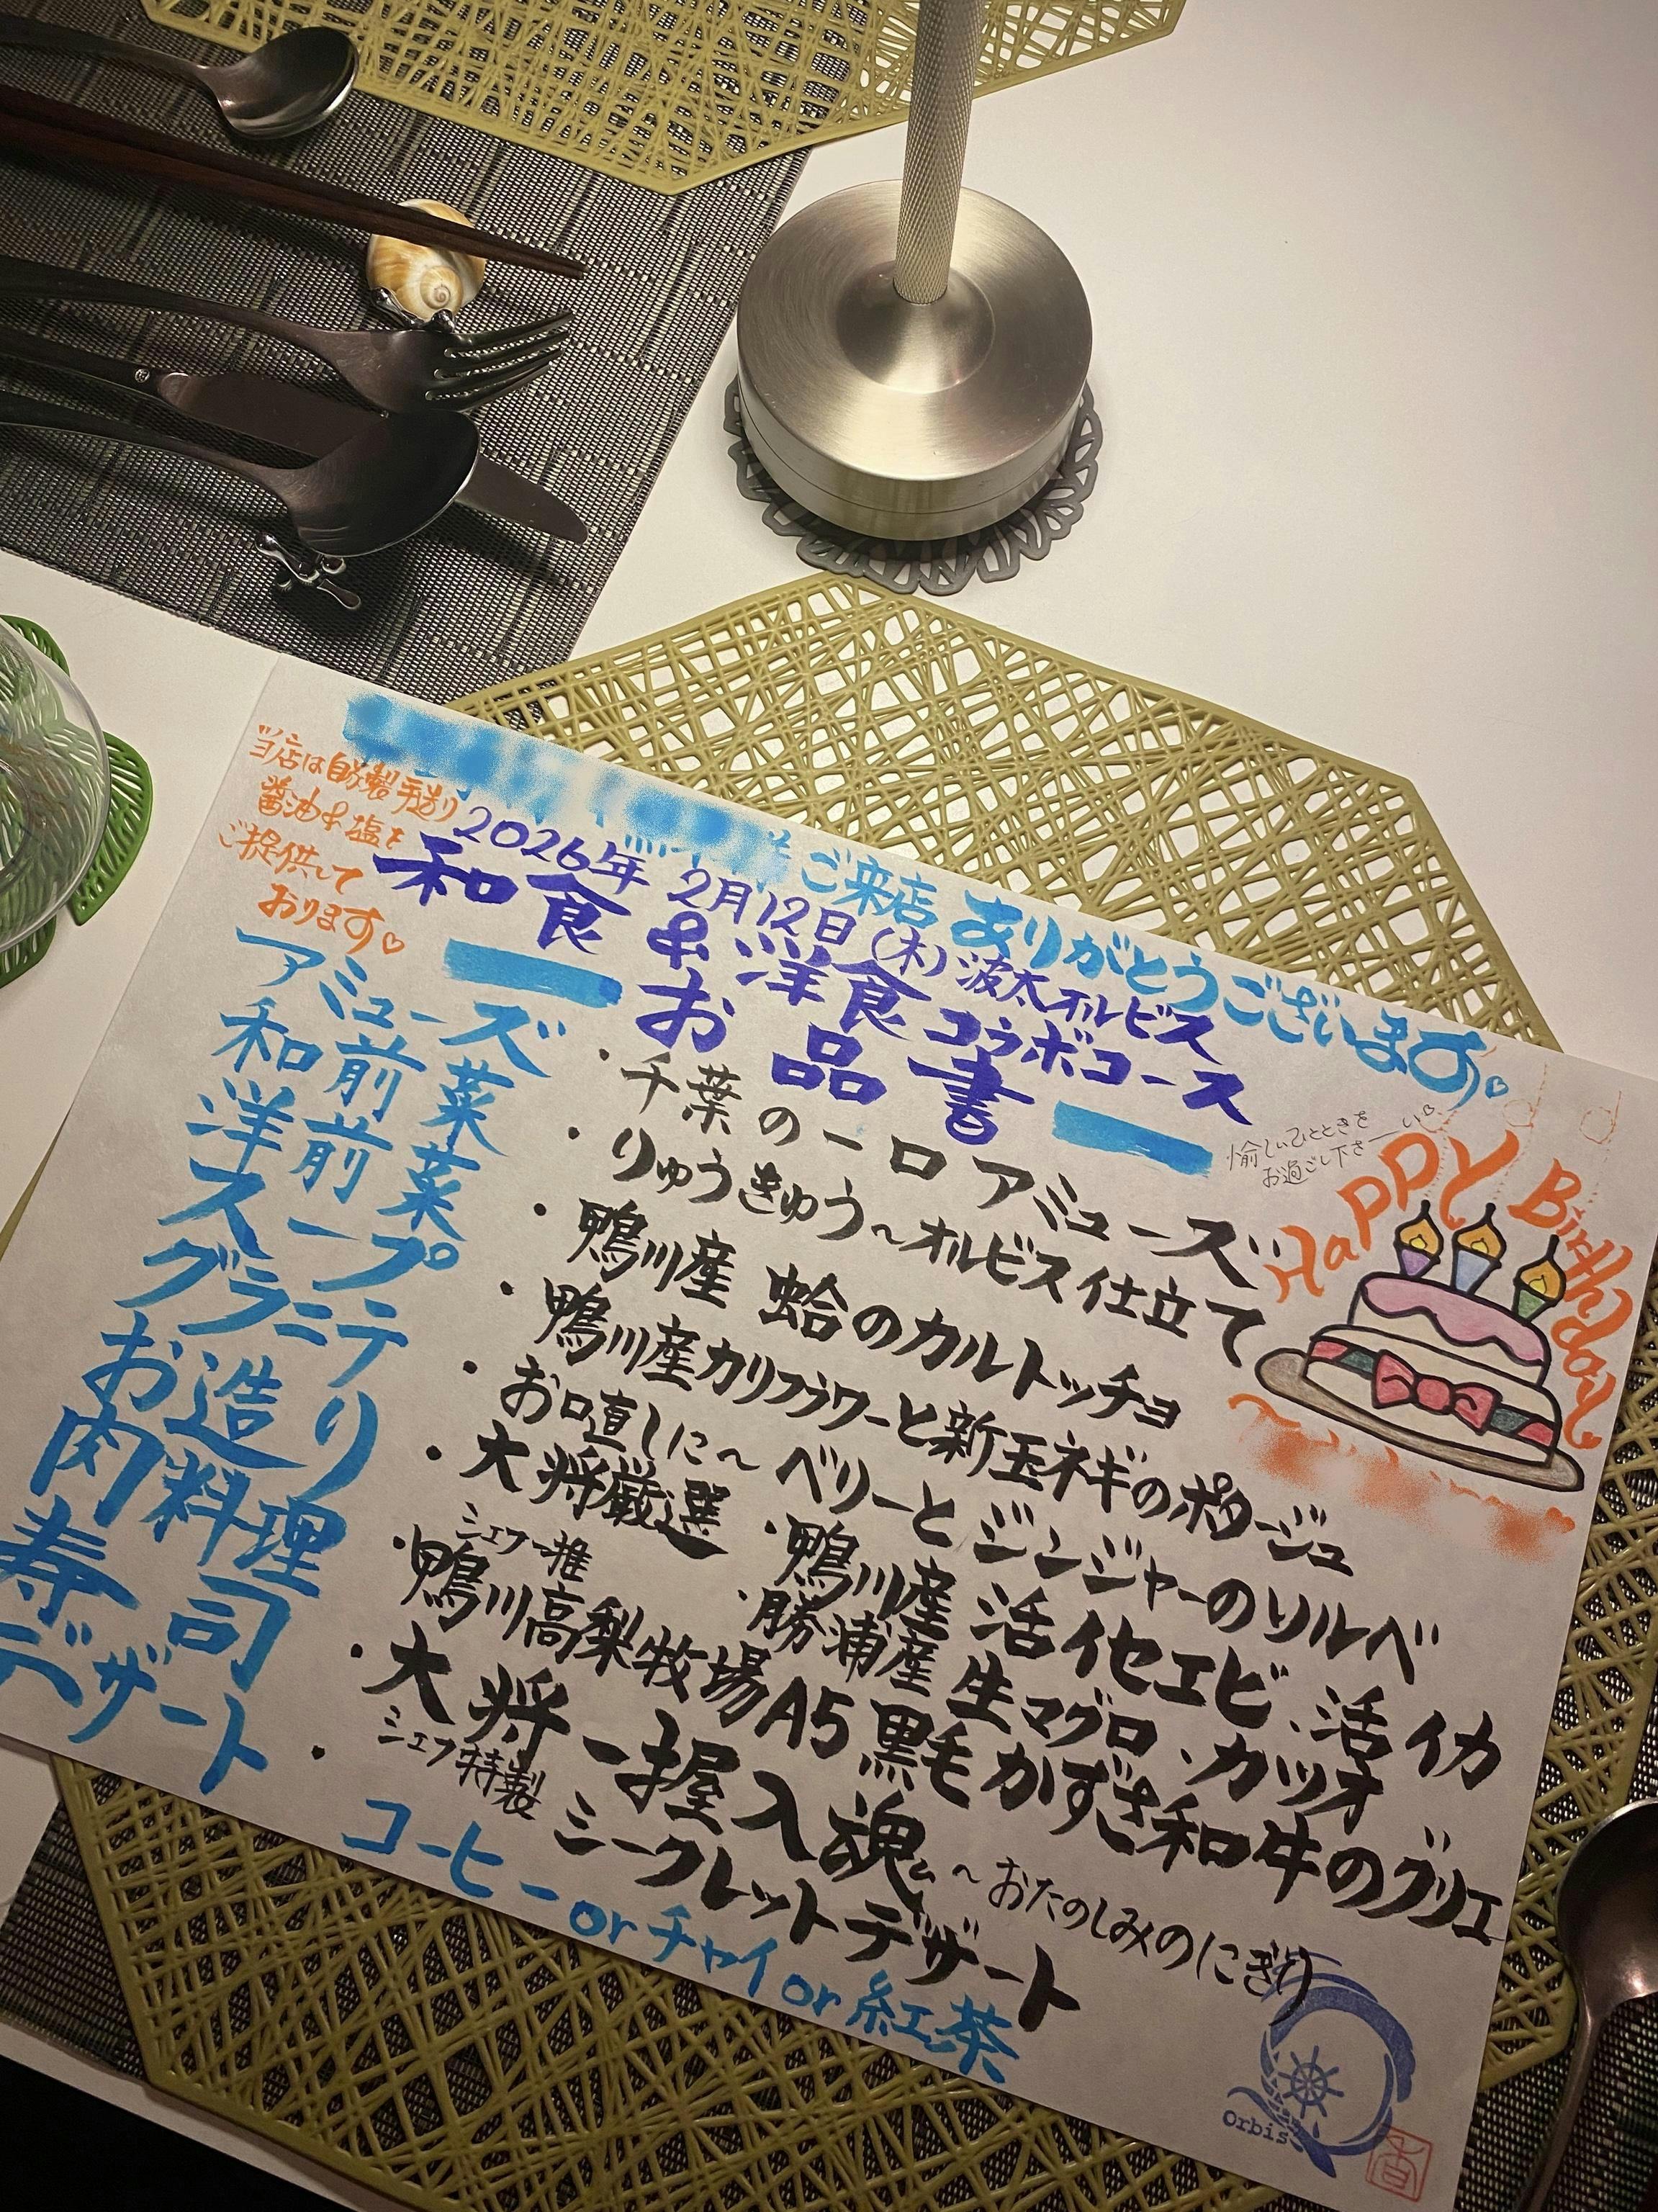 様 ご来店 ありがとうございます♡
当店は自家製手造り
醤油&塩を
ご提供して
おります♡
2026年 2月12日(木) 波太オルビス
和食&洋食コラボコース
お品書
愉しいひとときを
お過ごし下さーい♡
Happy Birthday
アミューズ ・千葉の一口アミューズ
和前菜 ・りゅうきゅう~オルビス仕立て
洋前菜 ・鴨川産 蛤のカルトッチョ
スープ ・鴨川産カリフラワーと新玉ネギのポタージュ
グラニテ ・お口直しに~ベリーとジンジャーのソルベ
お造り ・大将厳選 ・鴨川産 活イセエビ、活イカ
・勝浦産 生マグロ、カツオ
肉料理 ・シェフ一推 鴨川高梨牧場A5黒毛かずさ和牛のグリエ
寿司 ・大将一握入魂 ~おたのしみのにぎり
デザート ・シェフ特製 シークレットデザート
コーヒー or チャイ or 紅茶
Orbis